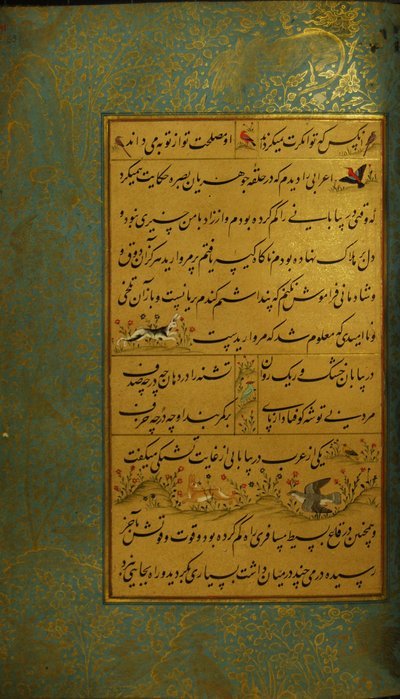 آنکس که توانگرت نمیگرداند او مصلحت تو از تو به می داند
اعرابی را دیدم که در حلقه جوهریان بصره حکایت همیکرد
که وقتی در بیابانی راه گم کرده بودم و از زاد با من چیزی نبود و
دل بر هلاک نهاده بودم ناگاه کیسه یافتم پر مروارید هرگز آن ذوق و
شادمانی فراموش نکنم که پنداشتم گندم بریانست و باز آن تلخی
و ناامیدی که معلوم شد که مرواریدست
در بیابان خشک و ریک روان تشنه را در دهان چه در چه صدف
مرد بی توشه کو فتاد از پای بر کمربند او چه در چه خزف
یکی از عرب در بیابانی از غایت تشنکی میکفت
و همچنین در قاع بسیط مسافری راه گم کرده بود و قوت و قوتش بآخر
رسیده درمی چند در میان داشت بسیاری بگردید و راه بجایی نبرد